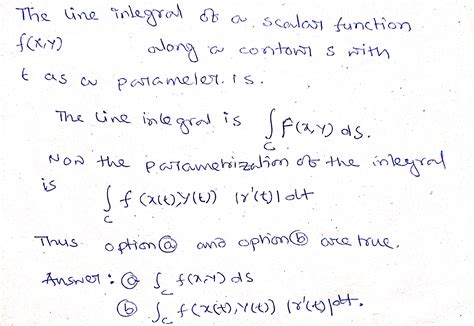 The line integral of a scalar function
f(x,y) along a contour s with
t as a parameter. is.
The line integral is ∫_C F(x,y) ds.
Now the parametrization of the integral
is ∫_C f (x(t),y(t)) |r'(t)| dt
Thus option ⓐ and option ⓑ are true.
Answer : ⓐ ∫_C f(x,y) ds
ⓑ ∫_C f(x(t),y(t)) |r'(t)| dt.